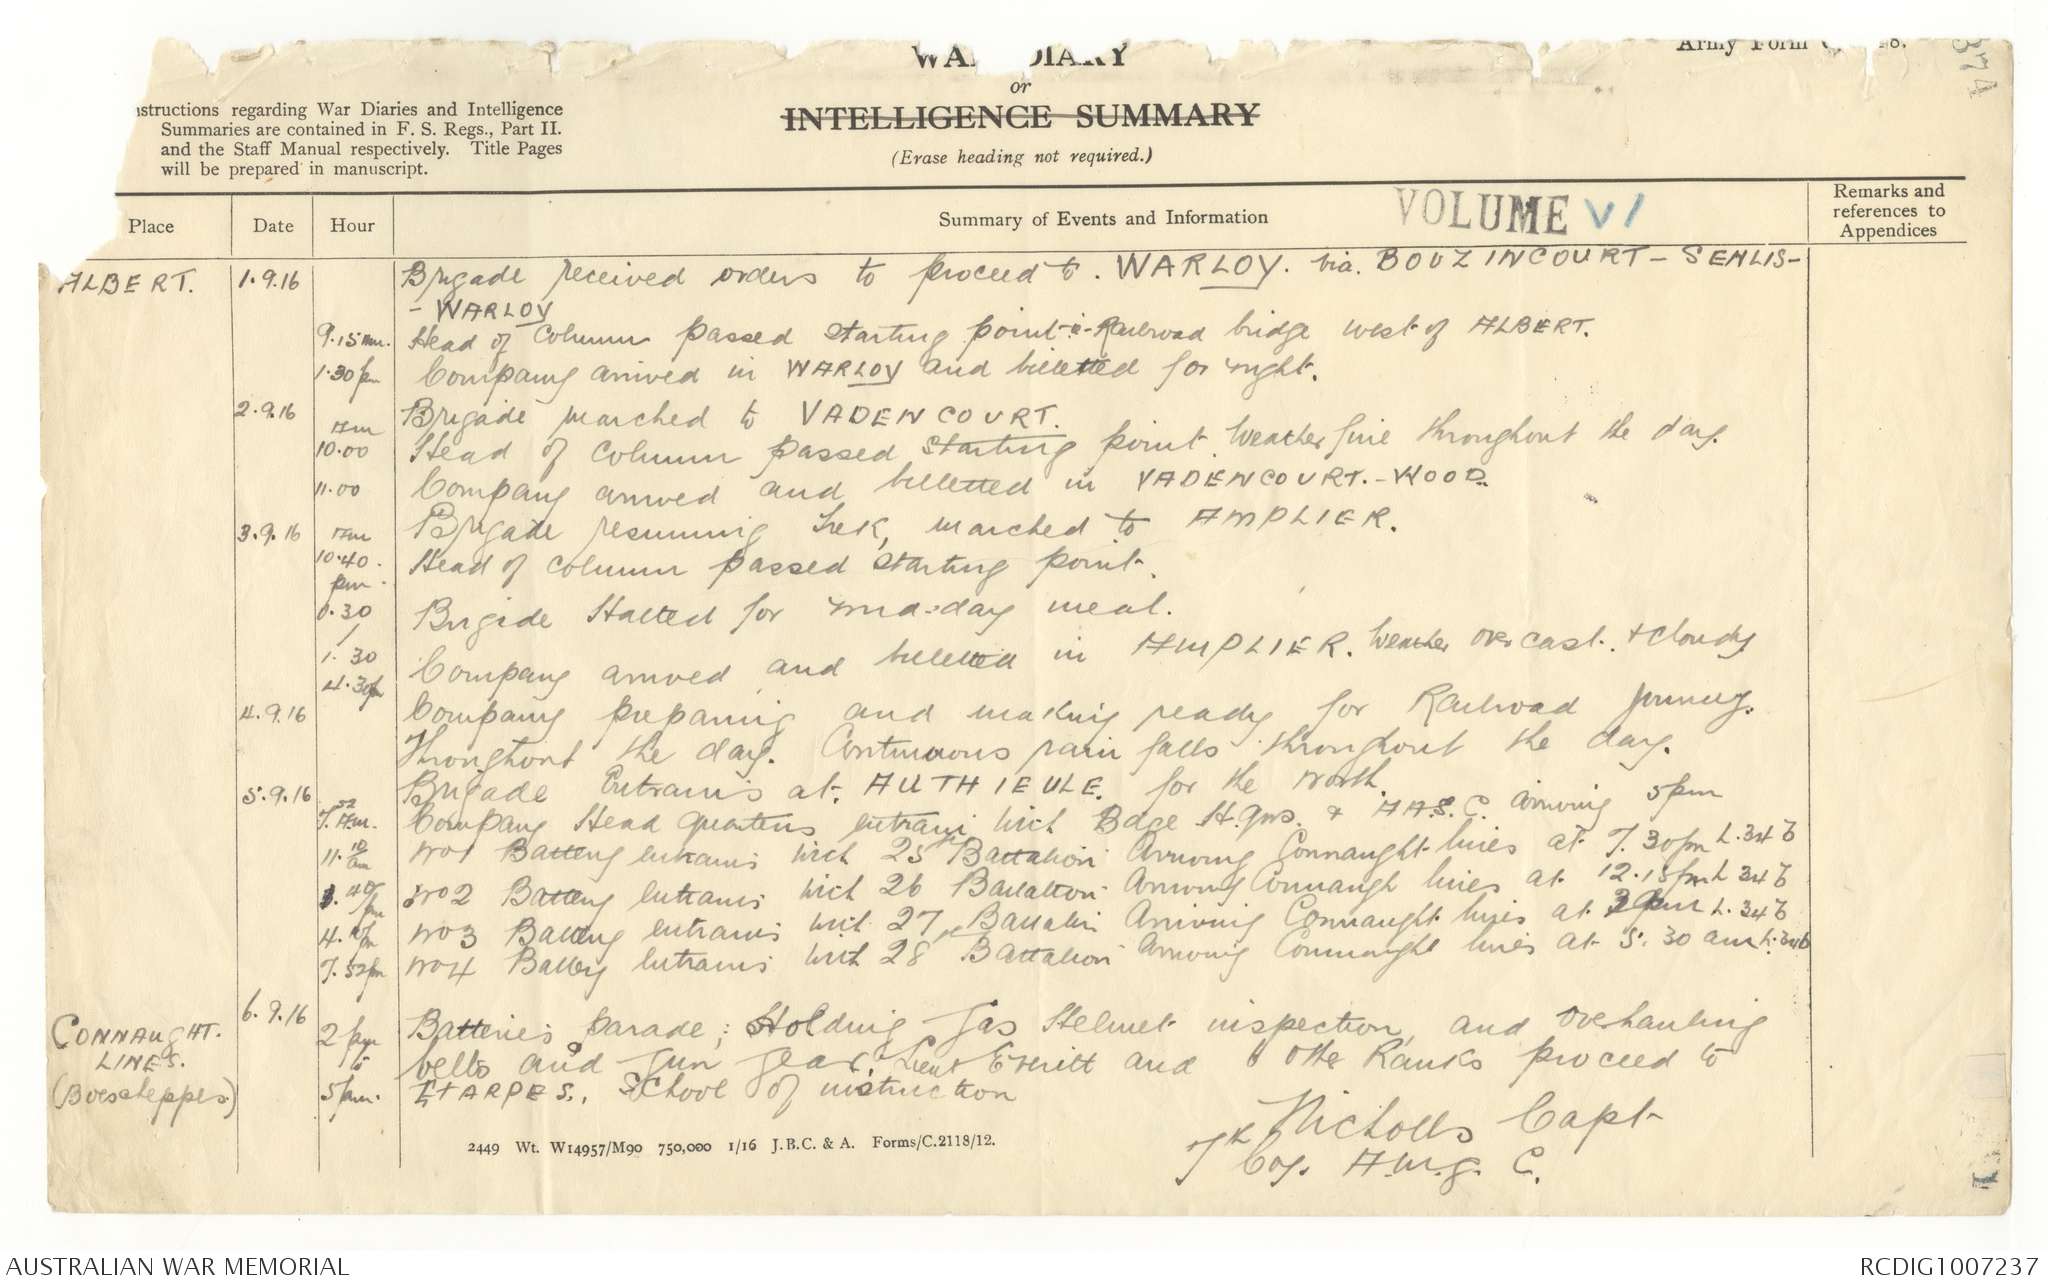 WAR DIARY
Army Form
374
or
INTELLIGENCE SUMMARY
(Erase heading not required.)
nstructions regarding War Diaries and Intelligence
Summaries are contained in F. S. Regs., Part II.
and the Staff Manual respectively. Title Pages
will be prepared in manuscript.
Place Date Hour Summary of Events and Information VOLUME VI Remarks and references to Appendices
ALBERT. 1.9.16 Brigade received orders to proceed to. WARLOY. via. BOUZINCOURT – SENLIS –
– WARLOY
9.15 am. Head of Column passed starting point Railroad bridge west of ALBERT.
1.30 pm Company arrived in WARLOY and billetted for night.
2.9.16 Brigade marched to VADENCOURT.
am 10.00 Head of column passed starting point. Weather fine throughout the day.
11.00 Company arrived and billetted in VADENCOURT.-WOOD.
3.9.16 am Brigade resuming trek, marched to AMPLIER.
10.40. Head of column passed starting point.
pm. 0.30 Brigade Halted for mid-day meal.
/ 1.30
4.30pm Company arrived and billetted in AMPLIER. Weather overcast. & cloudy
4.9.16 Company preparing and making ready for Railroad journey.
Throughout the day. Continuous rain falls throughout the day.
5.9.16 Brigade Entrains at. AUTHIEULE. for the North.
7.52 am. Company Head Quarters entrain with Bdge H.Qrs. & A.A.S.C. arriving 5pm
11.10 am No 1 Battery entrains with 25th Battalion Arriving Connaught lines at 7.30pm L.34 b
3.40 pm No 2 Battery entrains with 26 Battalion Arriving Connaugh lines at 12.15pm L 34 b
4. pm No 3 Battery entrains with 27 Battalion Arriving Connaught lines at 2 am L.34 b
7.52pm No 4 Battery entrains with 28 Battalion Arriving Connaught lines at 5.30 am L.34b
CONNAUGHT. LINES. (Boescheppes) 6.9.16 2 pm to 5 pm. Batteries parade; Holding Gas Helmet inspection, and overhauling
belts and gun gear, Lieut Everitt and 6 other Ranks proceed to
ETARPES., School of instruction
Nicholls Capt
7th Coy. A.M.G. C.
2449 Wt. W14957/M90 750,000 1/16 J.B.C. & A. Forms/C.2118/12.
AUSTRALIAN WAR MEMORIAL
RCDIG1007237